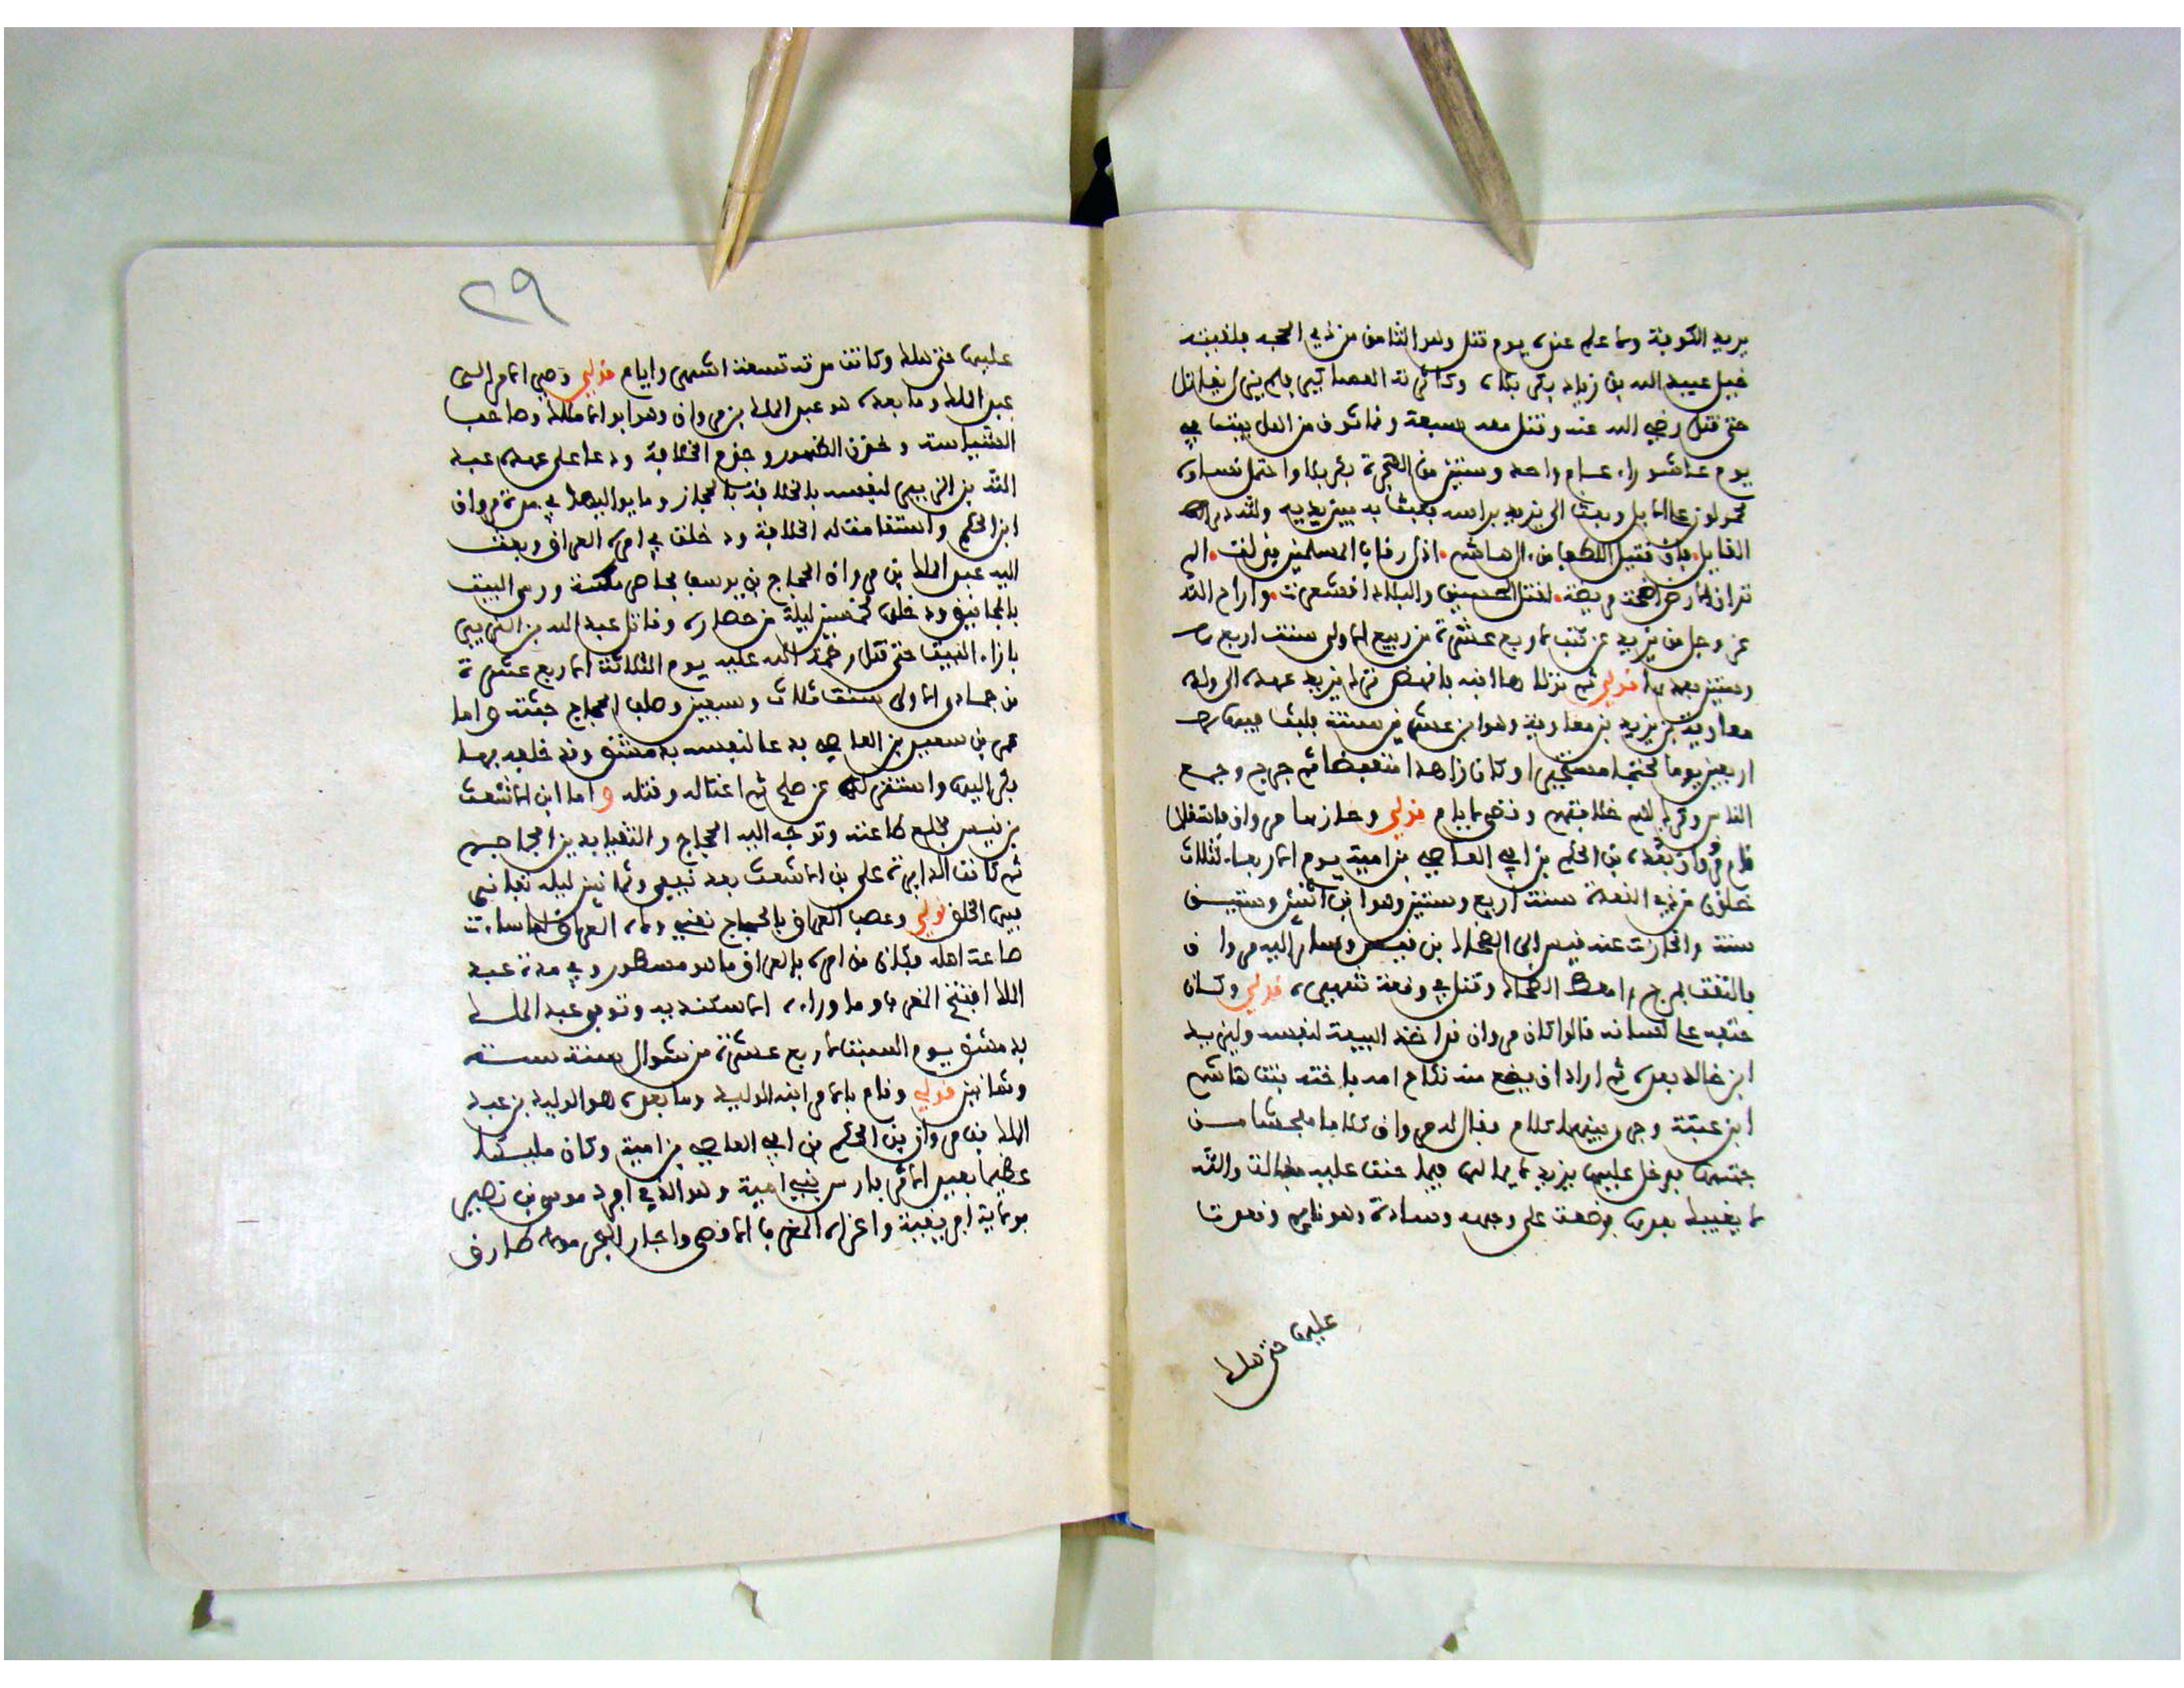 يريد الكوفة وما علم عنده يوم قتل وهو الثامن من ذي الحجة فلقيته
خيل عبيد الله بن زياد بكربلاء وكاثرته العصا كبير فلم يزل يقاتل
حتى قتل رضي الله عنه وقتل معه سبعة وثمانون من اهل بيته في
يوم عاشوراء عام واحد وستين من الهجرة بكربلا واحتمل نساؤه
محمولون على الابل وبعث الى يزيد براسه فبعث به بين يديه ولله در
القايل فان قتيل الطف من ال هاشم اذل رقابا المسلمين فذلت الم
تر ان الارض اضحت مريضة لقتل الحسين والبلاد اقشعرت واراح الله
عز وجل من يزيد عن كثب لاربع عشرة من ربيع الاولى سنة اربع
وستين بعدها قولي ثم نزلها ابنه نزل يزيد عهده الى ولده
معاوية بن يزيد بن معاوية وهو ابن عشرين سنة فلبث فيها
اربعين يوما محتجبا وكان زاهدا منقبضا ثم خرج وجمع
الناس وترك لهم خلافتهم وقضى لايام قولي وحازها مروان فاستقلا
قام مروان بعده بن الحكم بن ابي العاصي بن امية يوم الاربعا لثلاث
خلون من ذي القعدة سنة اربع وستين وهو ابن اثنين وستين
سنة وانحازت عنه قيس الى الضحاك بن قيس وسار اليه مروان
فالتقت بمرج راهط الضحاك وقتل في وقعة شهيرة قولي وكان
حتفه على لسانه قالوا كان مروان قد اخذ البيعة لنفسه وليزيد
ابن خالد بعده ثم اراد ان يضع منه نكاح امه فاخته بنت هاشم
ابن عتبة وجرى بينهما كلام فقال له مروان كلاما فحشا من
جهتها فدخل عليها يزيد لايما لها فيما حنق عليه فقالت والله
لا يغيبك بعدها فوضعت على وجهه وسادة وهو نايم وقعدت
عليها حتى هلك
٢٩
عليها حتى هلك وكانت مدته تسعة اشهر وايام قولي وصى الامر الى
عبد الملك وما بعده هو عبد الملك بن مروان وهو ابو الاملاك وصاحب
السياسة وحزم الخلافة ودعا على عهده عبد
الله بن الزبير لنفسه بالخلافة بالحجاز وما يواليها في مدة مروان
ابن الحكم واستقامت له الخلافة ودخلت في امره العراق وبعث
اليه عبد الملك بن مروان الحجاج بن يوسف فحاصر مكة ورمى البيت
بالمجانيق ودخلت خمسين ليلة من حصاره وقاتل عبد الله بن الزبير
بازاء البيت حتى قتل رحمة الله عليه يوم الثلاثة لاربع عشرة
من جمادى الاولى سنة ثلاث وسبعين وصلب الحجاج جثته واما
عمر بن سعيد بن العاصي فدعا لنفسه بدمشق وقد خلفه بها
فكر اليها واستنزله عن صلح ثم اغتاله وقتله واما ابن الاشعث
بن قيس فخلع طاعته وتوجه اليه الحجاج والتقيا بدير الجماجم
ثم كانت الدايرة على بن الاشعث بعد نيف وثمانين ليلة تفانى
فيها الخلق قولي وعصب العراق بالحجاج نعني رماه العراق لما ساءت
طاعة اهله فكان من امره بالعراق ما هو مسطور وفي مدة عبد
الملك افتتح المغرب وما وراءه الاسكندرية وتوفي عبد الملك
بدمشق يوم السبت لاربع عشرة من شوال سنة ستة
وثمانين قولي وقام بالامر ابنه الوليد وما بعده هو الوليد بن عبد
الملك بن مروان بن الحكم بن ابي العاصي بن امية وكان مليكا
عظيما بعيد الاثر فارس بني امية وهو الذي افرد موسى بن نصير
بولاية افريقية واغزاه المغرب الاقصى واجاز البحر مولاه طارق